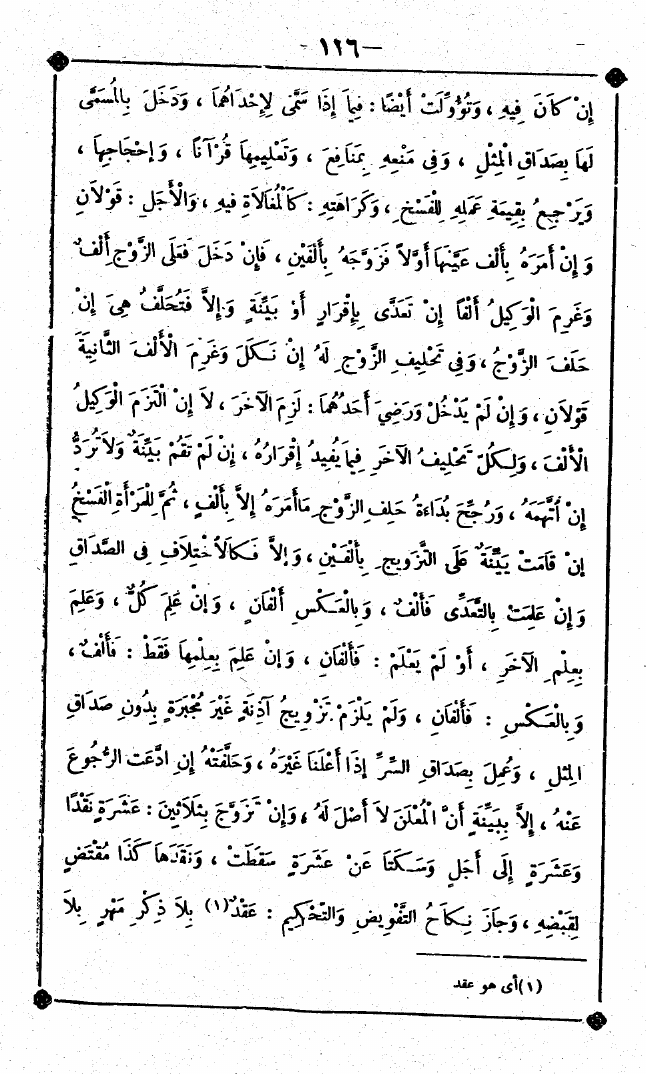 -١٢٦-
إِنْ كَانَ فِيهِ ، وَتُؤُوِّلَتْ أَيْضًا : فِيمَا إِذَا سَمَّى لِإِحْدَاهُمَا ، وَدَخَلَ بِالْمُسَمَّى
لَهَا بِصَدَاقِ الْمِثْلِ ، وَفِى مَنْعِهِ بِمَنَافِعَ ، وَتَعْلِيمِهَا قُرْآنًا ، وَإِحْجَاجِهَا ،
وَيَرْجِعُ بِقِيمَةِ عَمَلِهِ لِلْفَسْخِ ، وَكَرَاهَتِهِ : كَالْمُغَالَاةِ فِيهِ ، وَالْأَجَلِ : قَوْلَانِ
وَإِنْ أَمَرَهُ بِأَلْفٍ عَيَّنَهَا أَوَّلًا فَزَوَّجَهُ بِأَلْفَيْنِ ، فَإِنْ دَخَلَ فَعَلَى الزَّوْجِ أَلْفٌ
وَغَرِمَ الْوَكِيلُ أَلْفًا إِنْ تَعَدَّى بِإِقْرَارٍ أَوْ بَيِّنَةٍ وَإِلَّا فَتُحَلِّفُ هِىَ إِنْ
حَلَفَ الزَّوْجُ ، وَفِى تَحْلِيفِ الزَّوْجِ لَهُ إِنْ نَكَلَ وَغَرِمَ الْأَلْفَ الثَّانِيَةَ
قَوْلَانِ ، وَإِنْ لَمْ يَدْخُلْ وَرَضِيَ أَحَدُهُمَا : لَزِمَ الْآخَرَ ، لَا إِنِ الْتَزَمَ الْوَكِيلُ
الْأَلْفَ ، وَلِكُلٍّ تَحْلِيفُ الْآخَرِ فِيمَا يُفِيدُ إِقْرَارُهُ ، إِنْ لَمْ تَقُمْ بَيِّنَةٌ وَلَا تُرَدُّ
إِنِ اتَّهَمَهُ ، وَرُجِّحَ بُدَاءَةُ حَلِفِ الزَّوْجِ مَا أَمَرَهُ إِلَّا بِأَلْفٍ ، ثُمَّ لِلْمَرْأَةِ الْفَسْخُ
إِنْ قَامَتْ بَيِّنَةٌ عَلَى التَّزْوِيجِ بِأَلْفَيْنِ ، وَإِلَّا فَكَالِاخْتِلَافِ فِى الصَّدَاقِ
وَإِنْ عَلِمَتْ بِالتَّعَدِّى فَأَلْفٌ ، وَبِالْعَكْسِ أَلْفَانِ ، وَإِنْ عَلِمَ كُلٌّ ، وَعَلِمَ
بِعِلْمِ الْآخَرِ ، أَوْ لَمْ يَعْلَمْ : فَأَلْفَانِ ، وَإِنْ عَلِمَ بِعِلْمِهَا فَقَطْ : فَأَلْفٌ ،
وَبِالْعَكْسِ : فَأَلْفَانِ ، وَلَمْ يَلْزَمْ تَزْوِيجُ آذِنَةٍ غَيْرِ مُجْبَرَةٍ بِدُونِ صَدَاقِ
الْمِثْلِ ، وَعُمِلَ بِصَدَاقِ السِّرِّ إِذَا أَعْلَنَا غَيْرَهُ ، وَحَلَّفَتْهُ إِنِ ادَّعَتِ الرُّجُوعَ
عَنْهُ ، إِلَّا بِبَيِّنَةٍ أَنَّ الْمُعْلَنَ لَا أَصْلَ لَهُ ، وَإِنْ تَزَوَّجَ بِثَلَاثِينَ : عَشَرَةٍ نَقْدًا
وَعَشَرَةٍ إِلَى أَجَلٍ وَسَكَتَا عَنْ عَشَرَةٍ سَقَطَتْ ، وَنَقَدَهَا كَذَا مُقْتَضٍ
لِقَبْضِهِ ، وَجَازَ نِكَاحُ التَّفْوِيضِ وَالتَّحْكِيمِ : عَقْدٌ (١) بِلَا ذِكْرِ مَهْرٍ بِلَا
(١) أى هو عقد